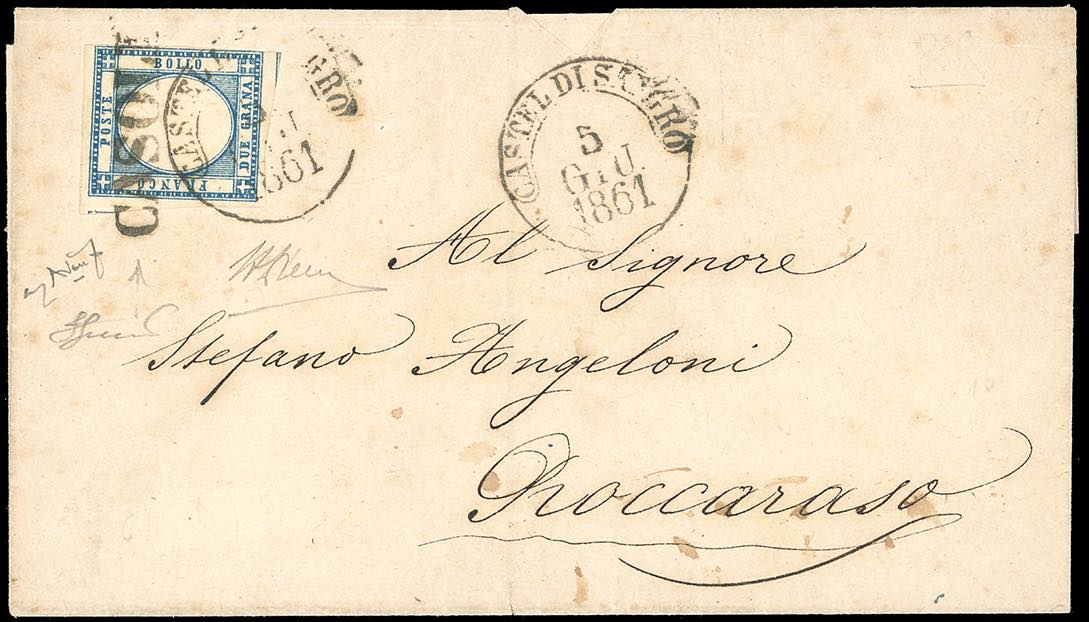 BOLLO
POSTE
DUE GRANA
FRANCO
1861
CASTEL DI SANGRO
5
GIU
1861
Al Signore
Stefano Angeloni
Roccaraso